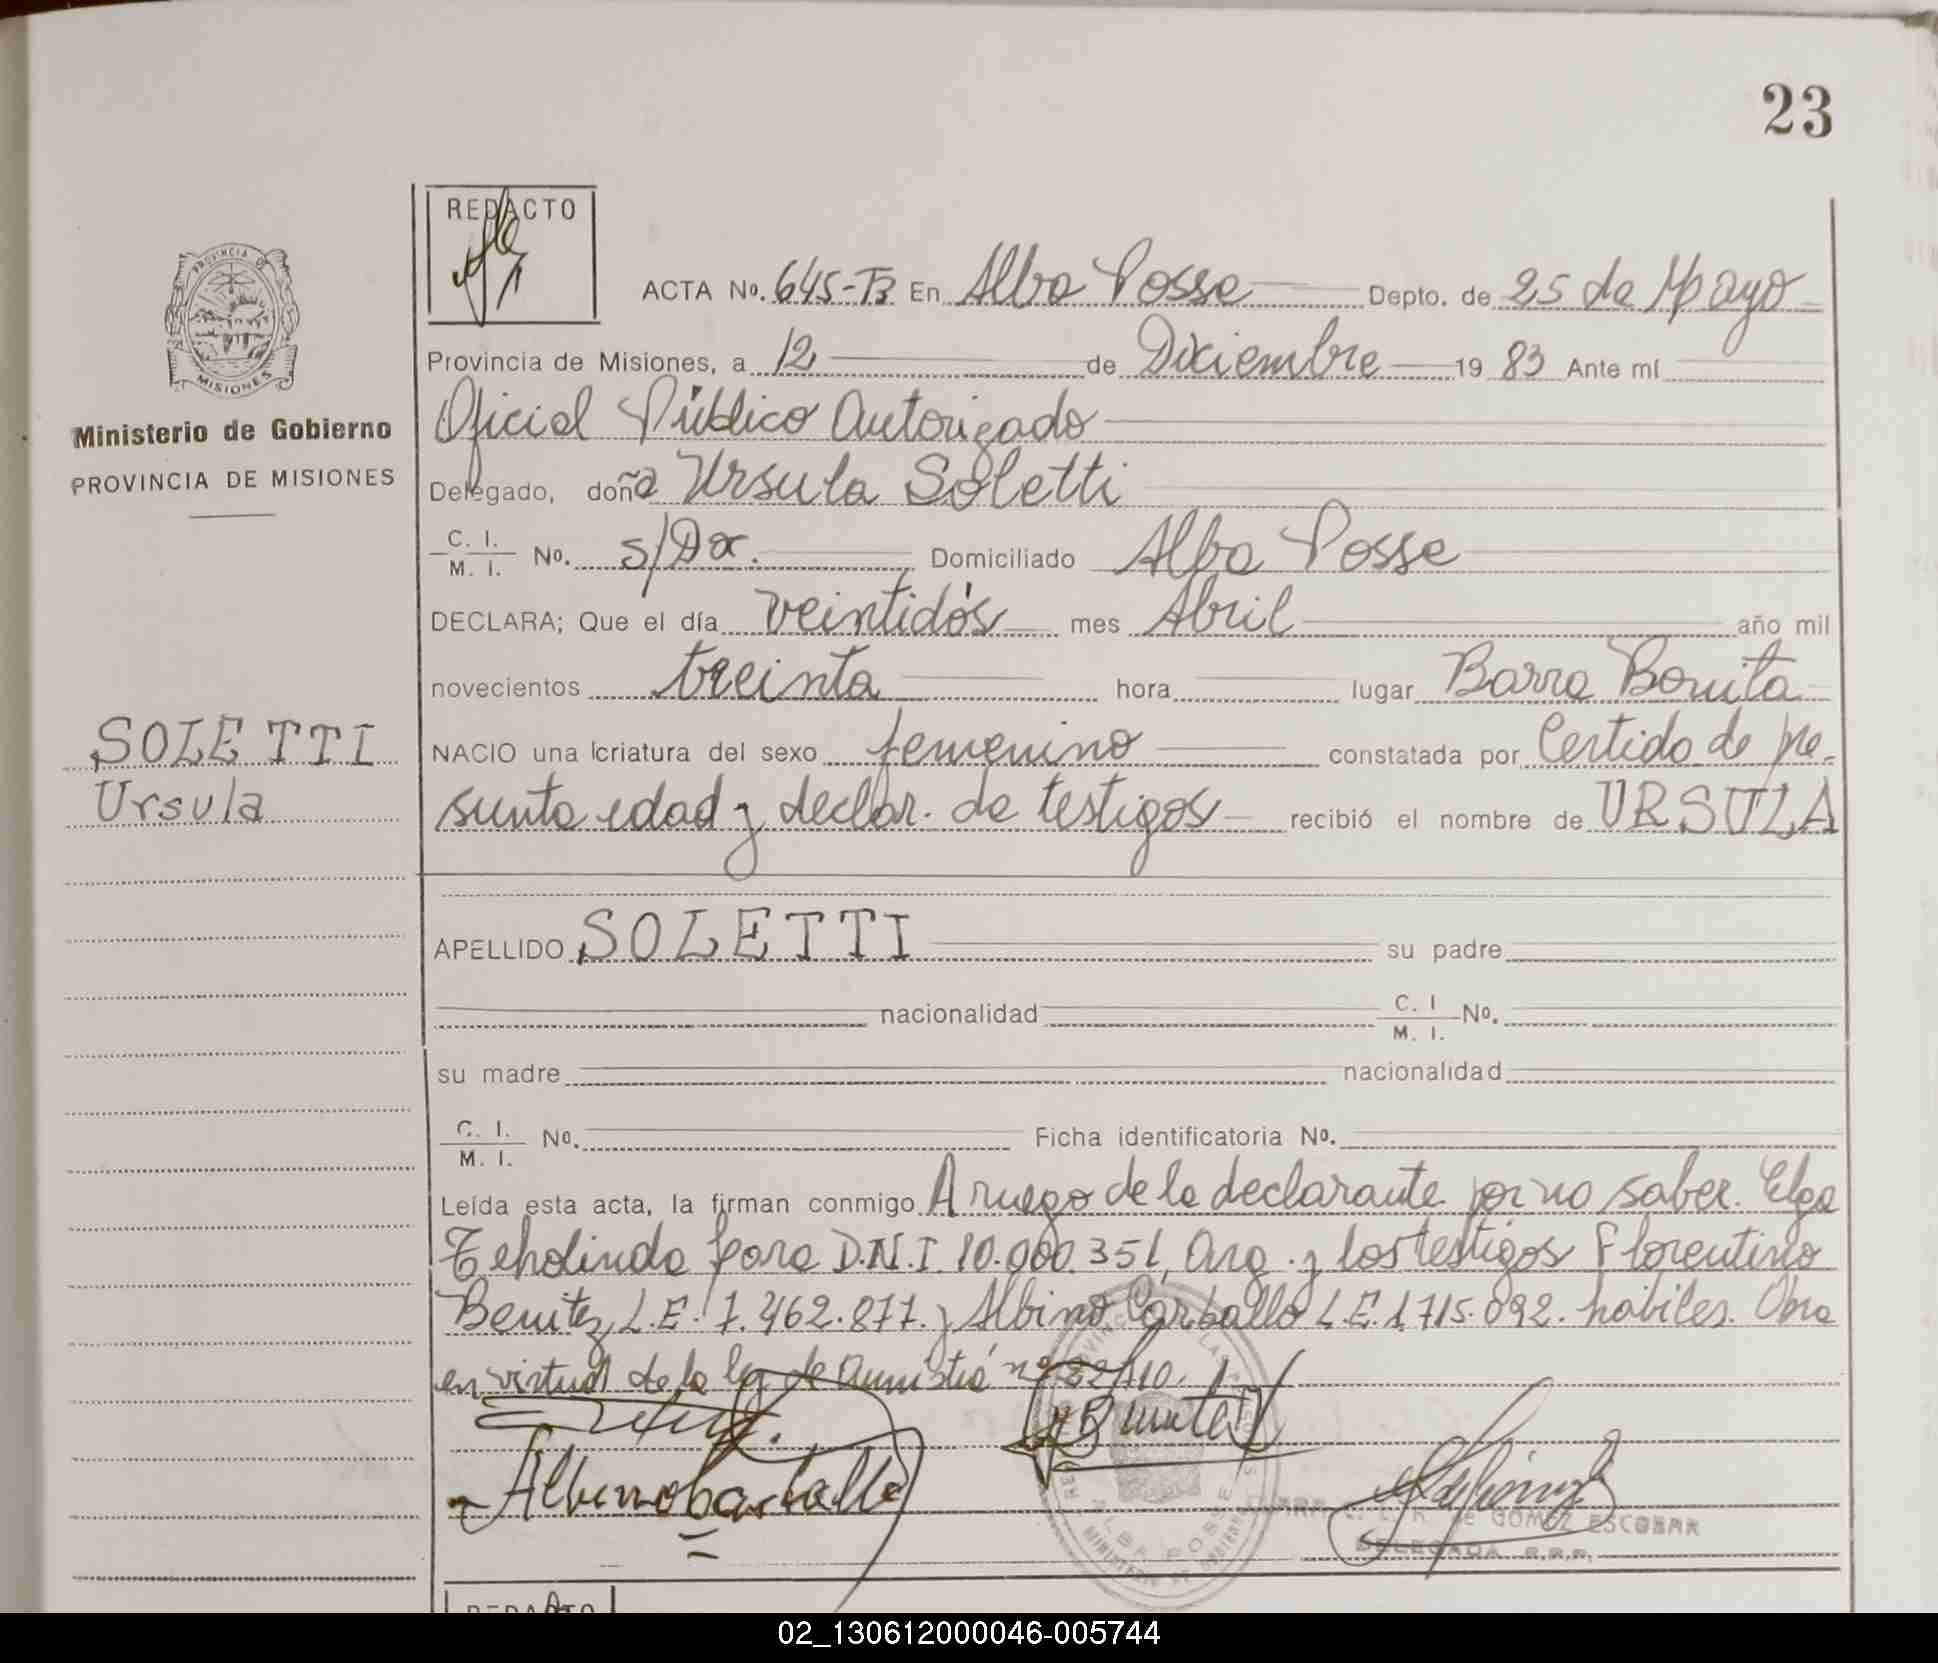 23
REDACTO
PROVINCIA DE
MISIONES
Ministerio de Gobierno
PROVINCIA DE MISIONES
SOLETTI
Ursula
ACTA No. 645-TB En Alba Posse Depto. de 25 de Mayo
Provincia de Misiones, a 12 de Diciembre 19 83 Ante mí
Oficial Público Autorizado
Delegado, doña Ursula Soletti
C. I. M. I. No. s/Doc. Domiciliado Alba Posse
DECLARA; Que el día veintidós mes Abril año mil
novecientos treinta hora lugar Barra Bonita
NACIO una criatura del sexo femenino constatada por Certido de pre-
sunta edad y declar. de testigos recibió el nombre de URSULA
APELLIDO SOLETTI su padre
nacionalidad C. I M. I. No.
su madre nacionalidad
C. I. M. I. No. Ficha identificatoria No.
Leída esta acta, la firman conmigo A ruego de la declarante por no saber. Elga
Teholinda D.N.I. 10.000.351, Arg. y los testigos Florentino
Benitez L.E. 7.462.877. y Albino Carballo L.E. 1.715.092. hábiles. Obra
en virtud de la ley de Amnistía nº 22410.
Benitez
Albino Carballo
ALBA POSSE
de GOMEZ ESCOBAR
DELEGADA R.R.P.
REDACTO
02_130612000046-005744